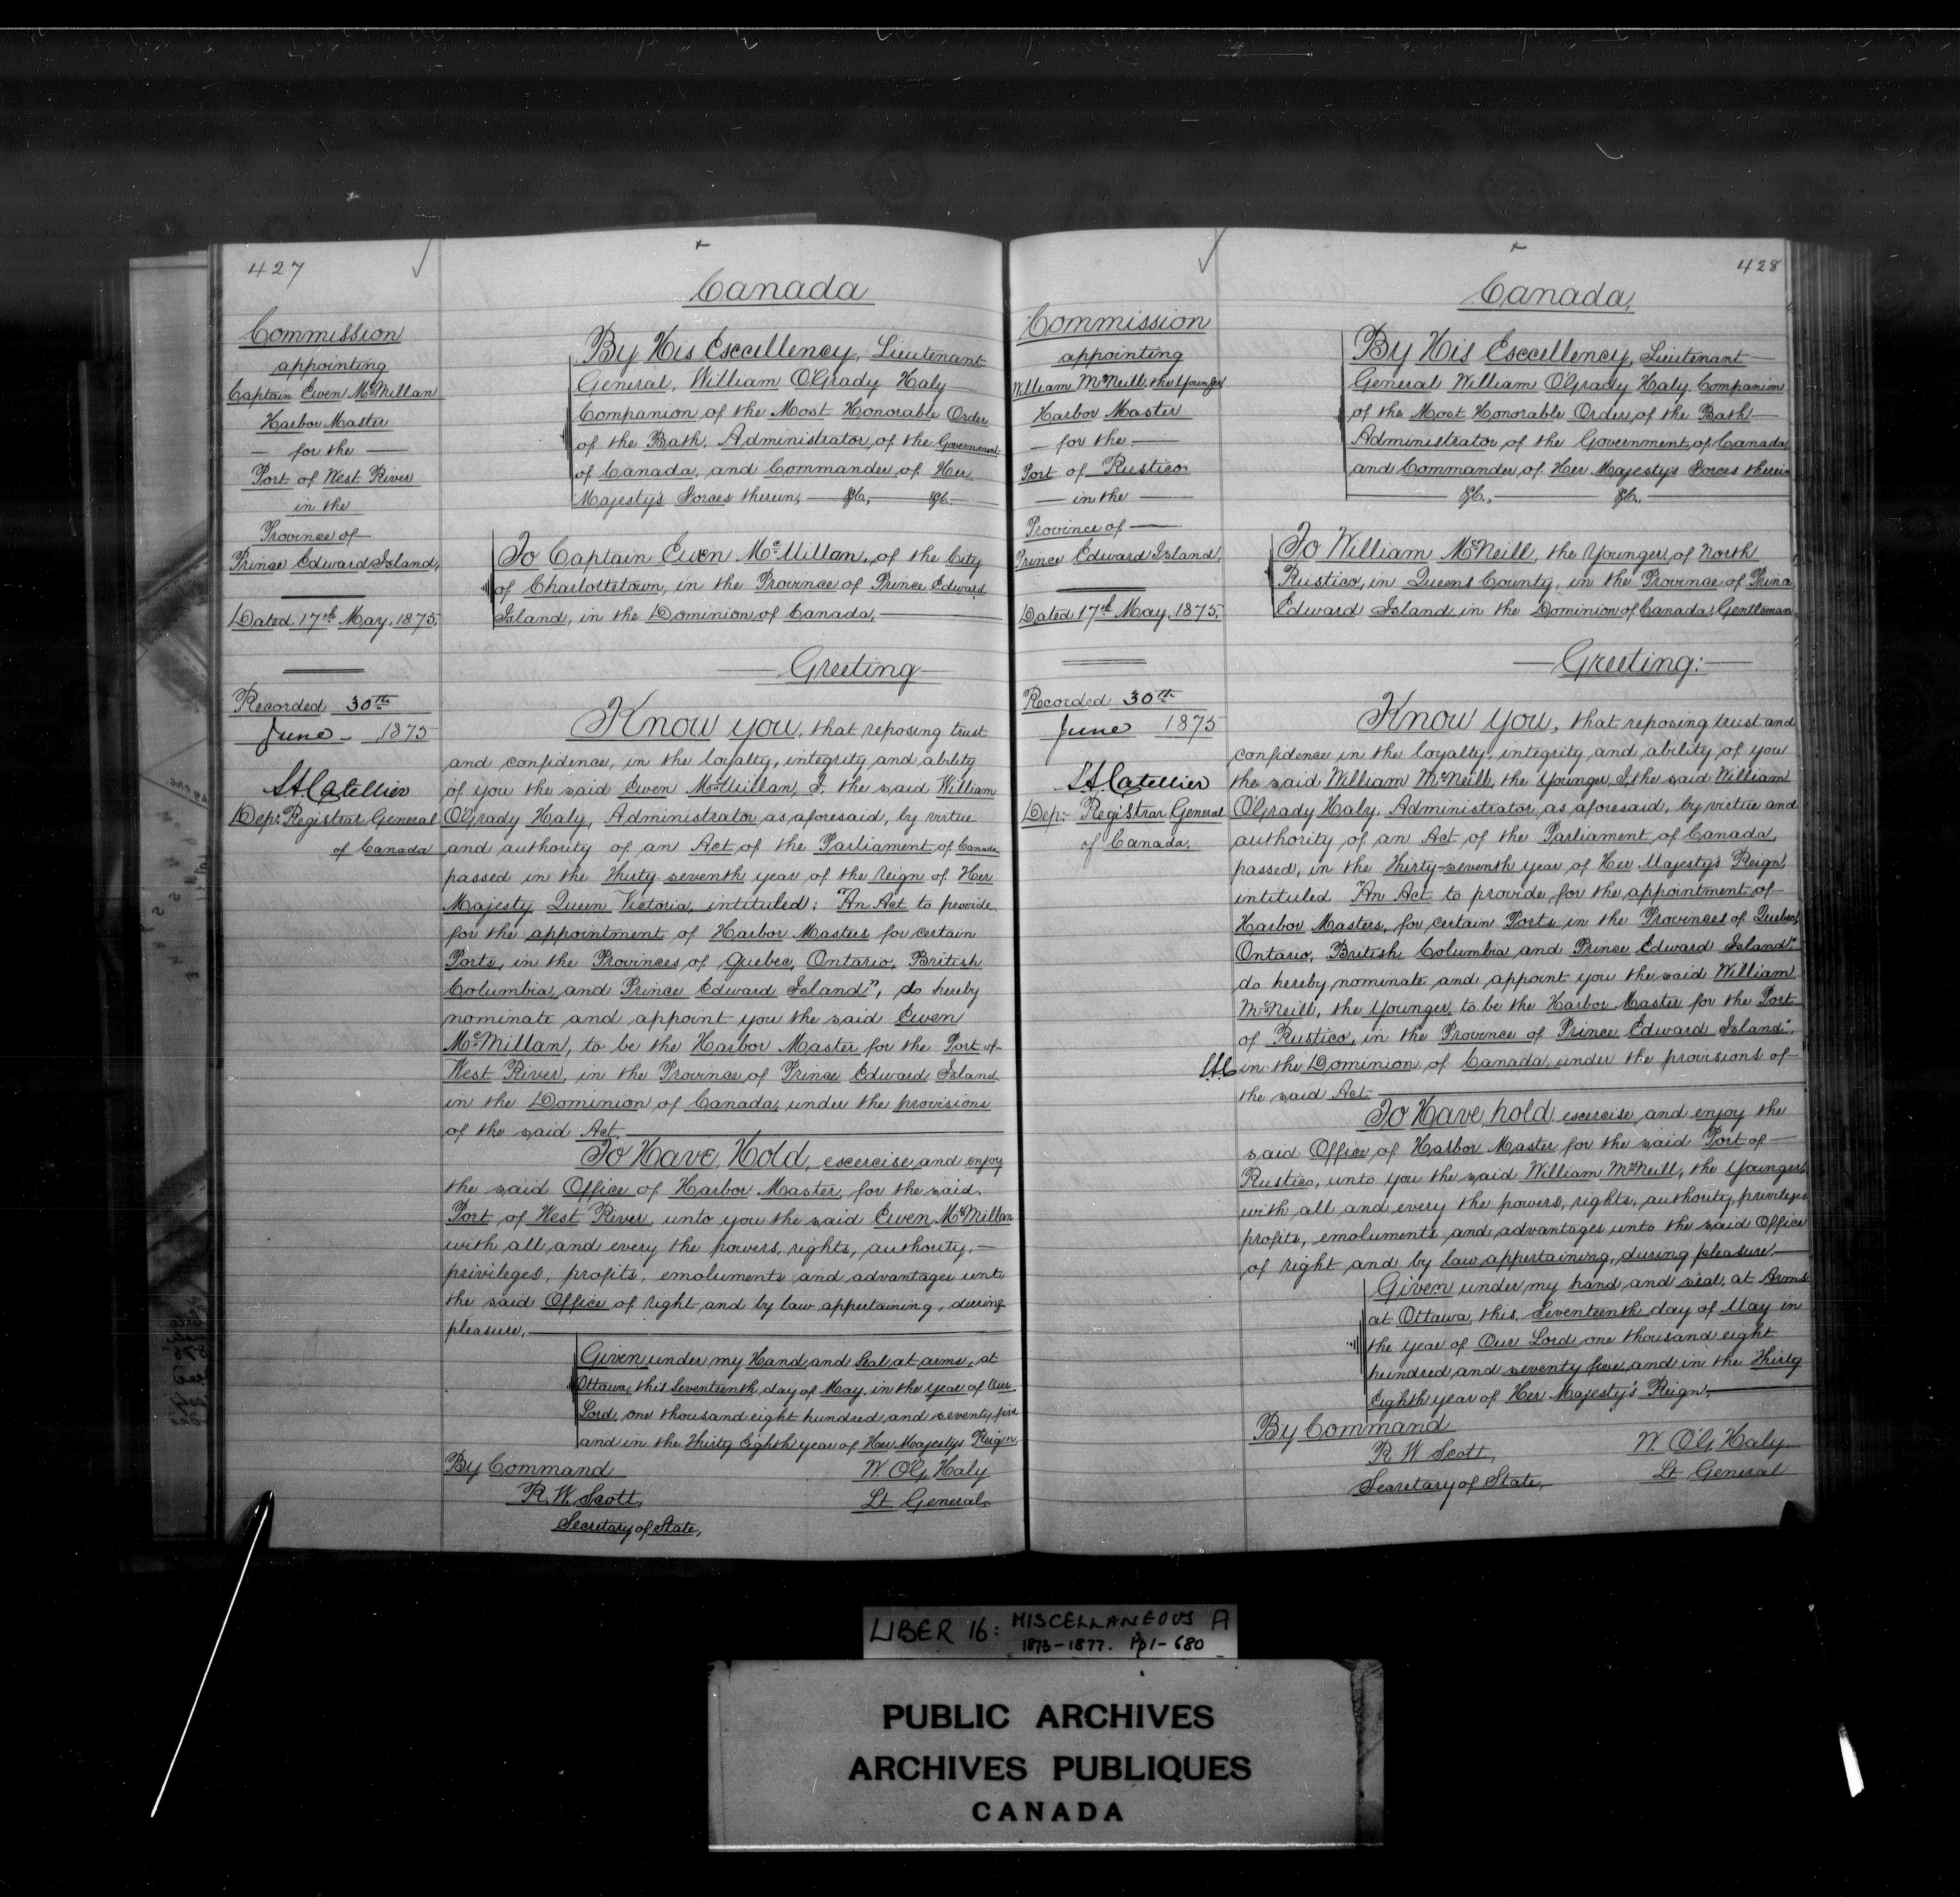 427
Canada
Commission
appointing
Captain Ewen McMillan
Harbor Master
— for the —
Port of West River
in the
Province of
Prince Edward Island,
Dated 17th May, 1875,
Recorded 30th
June - 1875
Dep: Registrar General
of Canada
By His Excellency, Lieutenant
General, William O'Grady Haly
Companion of the Most Honorable Order
of the Bath, Administrator, of the Government
of Canada, and Commander of Her
Majesty's Forces therein, — &c, — &c. —
To Captain Ewen McMillan, of the City
of Charlottetown, in the Province of Prince Edward
Island, in the Dominion of Canada, —
— Greeting —
Know you, that reposing trust
and confidence, in the loyalty, integrity and ability
of you the said Ewen McMillan, I, the said William
O'Grady Haly, Administrator, as aforesaid, by virtue
and authority of an Act of the Parliament of Canada
passed in the Thirty-seventh year of the Reign of Her
Majesty, Queen Victoria, intituled: "An Act to provide
for the appointment of Harbor Masters for certain
Ports, in the Provinces of Quebec, Ontario, British
Columbia, and Prince Edward Island", do hereby
nominate and appoint you the said Ewen
McMillan, to be the Harbor Master for the Port of
West River, in the Province of Prince Edward Island
in the Dominion of Canada, under the provisions
of the said Act. —
To Have, Hold, exercise, and enjoy
the said Office of Harbor Master, for the said
Port of West River, unto you the said Ewen McMillan
with all and every the powers, rights, authority, —
privileges, profits, emoluments and advantages unto
the said Office of right and by law appertaining, during
pleasure. —
Given under my Hand and Seal at arms, at
Ottawa, this Seventeenth, day of May, in the year of Our
Lord, one thousand eight hundred, and seventy five
and in the Thirty Eighth year of Her Majestys Reign
By Command
W. O'G, Haly
R. W. Scott,
Lt General,
Secretary of State,
428
Canada,
Commission
appointing
William McNeill, the Younger
Harbor Master
— for the —
Port of Rustico
— in the —
Province of —
Prince Edward Island,
Dated 17th May, 1875,
Recorded 30th
June 1875
Dep: Registrar General
of Canada,
By His Excellency, Lieutenant —
General William O'Grady Haly. Companion
of the Most Honorable Order, of the Bath —
Administrator, of the Government, of Canada,
and Commander, of Her Majesty's Forces therein
— &c., — &c., —
To William McNeill, the Younger, of North
Rustico, in Queens County, in the Province of Prince
Edward Island in the Dominion of Canada, Gentleman
— Greeting: —
Know you, that reposing trust and
confidence in the loyalty, integrity and ability of you
the said William McNeill, the Younger, I, the said William
O'Grady Haly, Administrator, as aforesaid, by virtue and
authority of an Act of the Parliament of Canada,
passed, in the Thirty-seventh year of Her Majesty's Reign,
intituled "An Act to provide for the appointment of
Harbor Masters, for certain Ports in the Provinces of Quebec,
Ontario, British Columbia and Prince Edward Island,"
do hereby nominate and appoint you the said William
McNeill, the Younger, to be the Harbor Master for the Port
of Rustico, in the Province of Prince Edward Island",
in the Dominion of Canada, under the provisions of —
the said Act. —
To Have, hold, exercise, and enjoy the
said Office, of Harbor Master for the said Port of —
Rustico, unto you the said William McNeill, the Younger,
with all and every the powers, rights, authority, privileges
profits, emoluments and advantages unto the said Office
of right and by law appertaining, during pleasure. —
Given under my hand and seal, at Arms
at Ottawa, this, Seventeenth day of May in
the year of Our Lord one thousand eight
hundred, and seventy five, and in the Thirty
Eighth year of Her Majesty's Reign, —
By Command
R W Scott,
W. O'G. Haly
Secretary of State,
Lt General
LIBER 16: MISCELLANEOUS A
1873-1877. Pp 1-680
PUBLIC ARCHIVES
ARCHIVES PUBLIQUES
CANADA